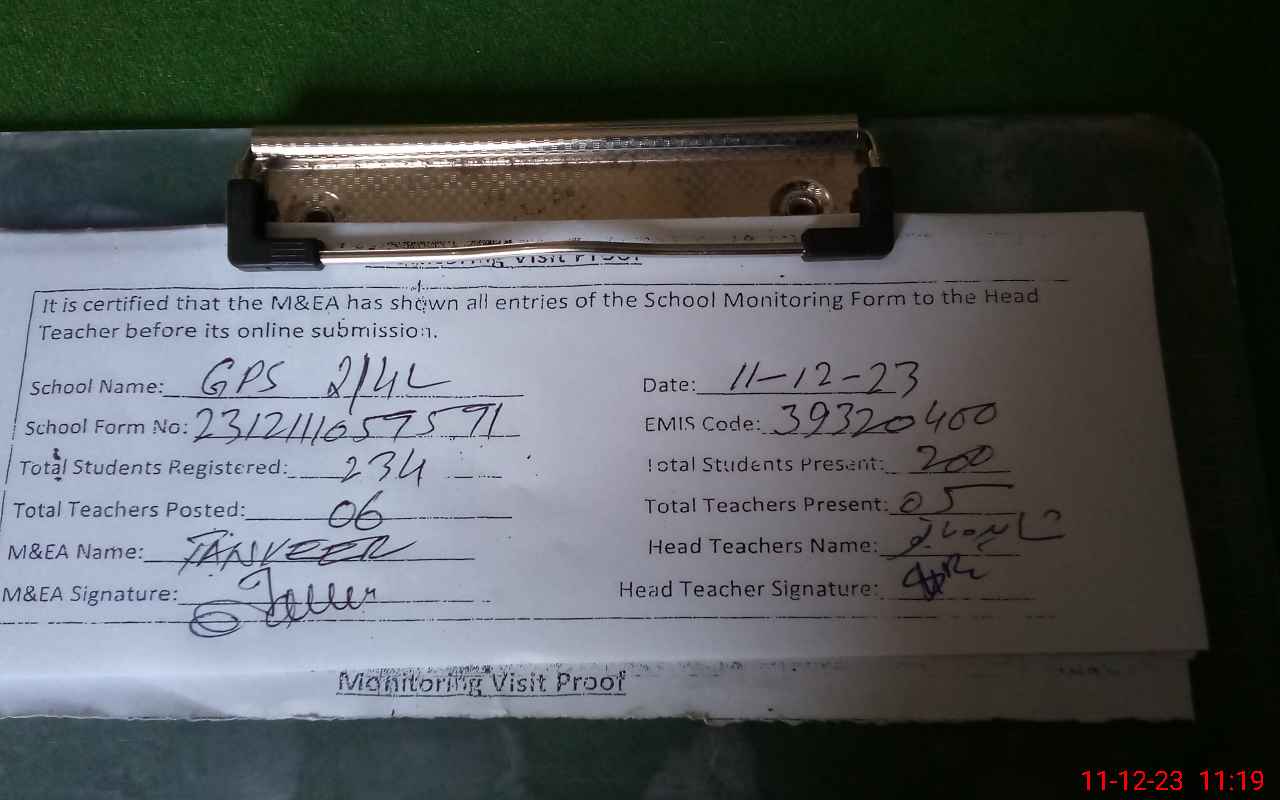 Monitoring Visit Proof
It is certified that the M&EA has shown all entries of the School Monitoring Form to the Head
Teacher before its online submission.
School Name: GPS 2/4L Date: 11-12-23
School Form No: EMIS Code: 39320400
Total Students Registered: 234 Total Students Present: 200
Total Teachers Posted: 06 Total Teachers Present: 05
M&EA Name: TANVEER Head Teachers Name:
M&EA Signature: Head Teacher Signature:
Monitoring Visit Proof
11-12-23 11:19